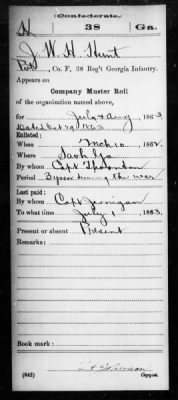 Confederate.
H 38 Ga.
J. W. H. Hunt
Pvt, Co. F, 38 Reg't Georgia Infantry.
Appears on
Company Muster Roll
of the organization named above,
for July & Aug, 1863
Dated Oct 29, 1863
Enlisted:
When Mch 10, 1862
Where Savh Ga
By whom Capt Thornton
Period 3 years during the war
Last paid:
By whom Capt Jernigan
To what time July 1, 1863.
Present or absent Present
Remarks:
Book mark:
(642) Copyist.